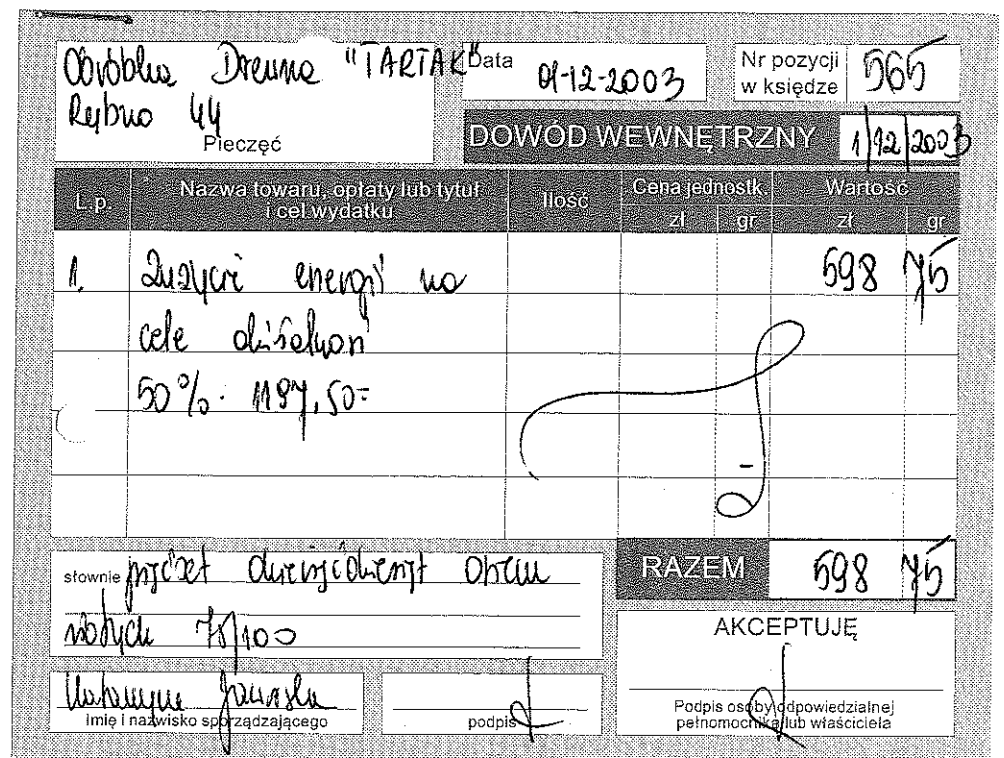 Obróbka Drewna "TARTAK"
Rybno 44
Pieczęć
Data 01-12-2003
Nr pozycji w księdze 565
DOWÓD WEWNĘTRZNY 1/12/2003
L.p. Nazwa towaru, opłaty lub tytuł i cel wydatku Ilość Cena jednostk. Wartość
zł gr zł gr
1. Zużycie energii na 598 75
cele działalnoś
50% · 1197,50=
RAZEM 598 75
słownie pięćset dziewięćdziesiąt osiem
złotych 75/100
AKCEPTUJĘ
Katarzyna
imię i nazwisko sporządzającego
podpis
Podpis osoby odpowiedzialnej
pełnomocnika lub właściciela